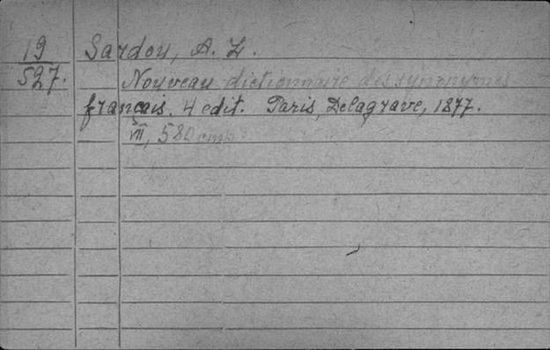 19 Sardou, A. L.
527. Nouveau dictionnaire des synonymes
français. 4 edit. Paris, Delagrave, 1877.
VIII, 580 стб.